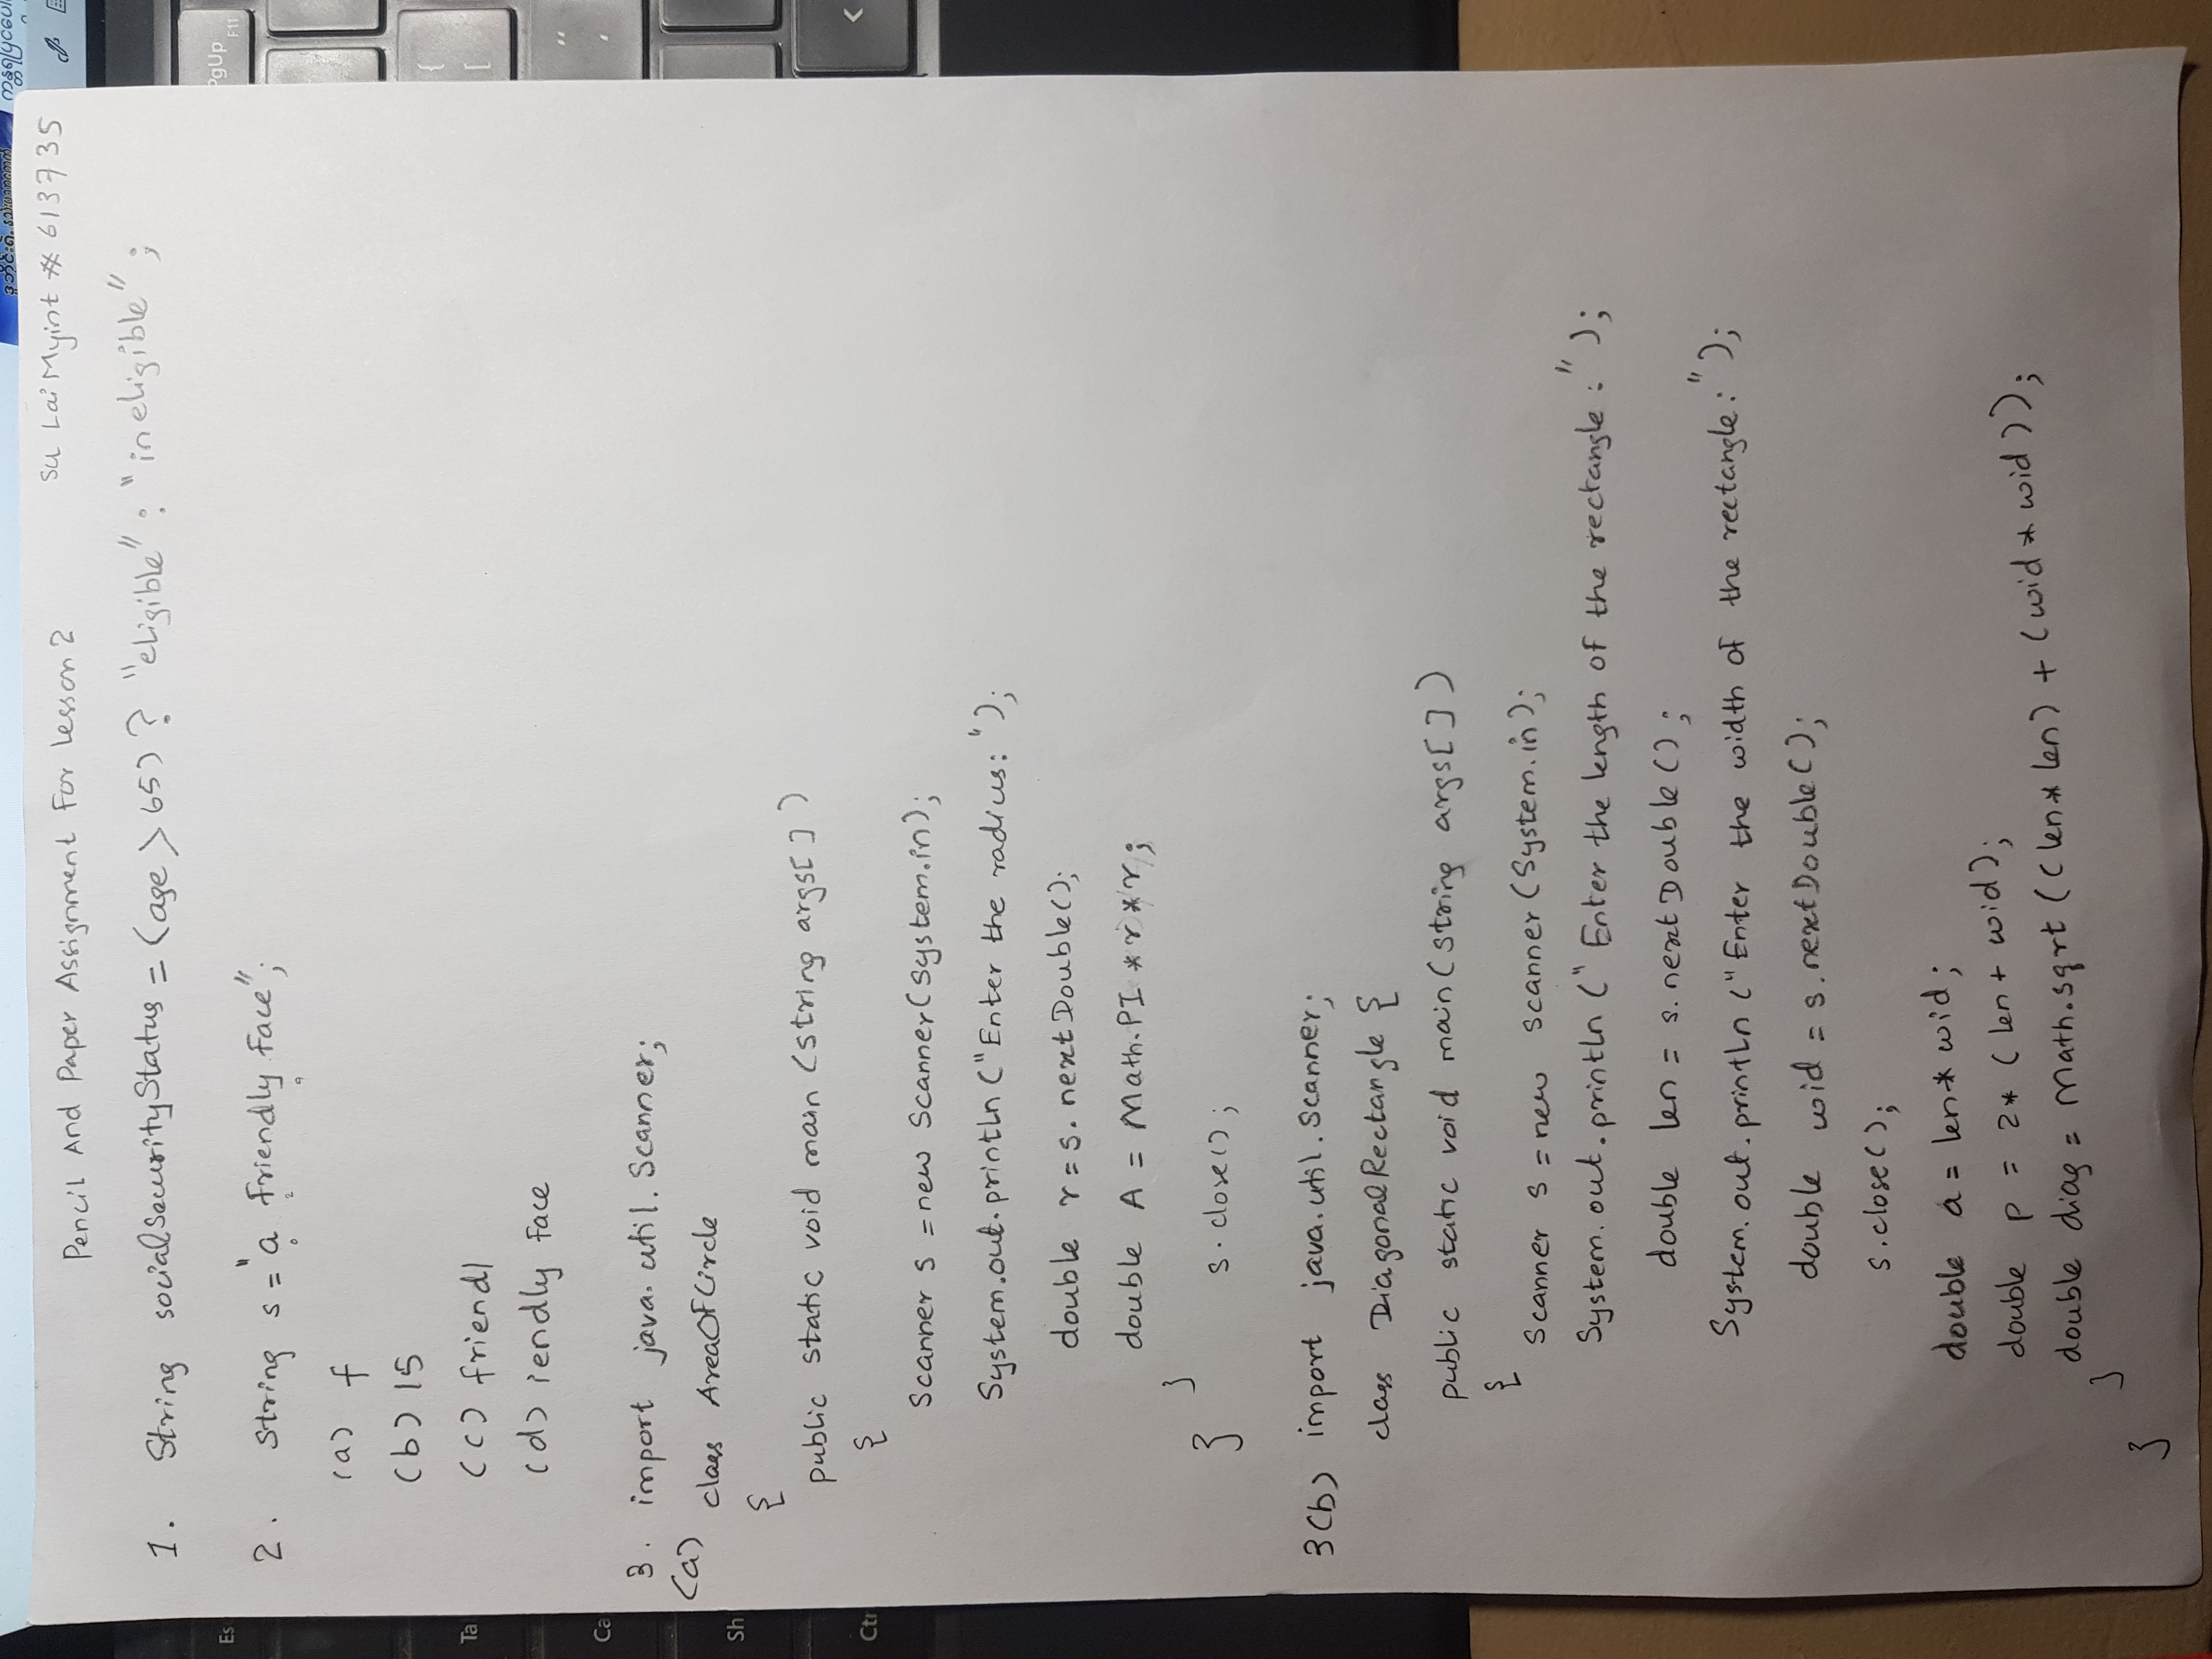 Pencil And Paper Assignment For Lesson 2
Su Lai Myint # 613735
1. String socialSecurityStatus = (age > 65) ? "eligible" : "ineligible" ;
2. String s = "a friendly face";
0 2 9
(a) f
(b) 15
(c) friendl
(d) iendly face
3. import java.util.Scanner;
(a)
class AreaOfCircle
{
public static void main (String args[ ] )
{
Scanner s = new Scanner(System.in);
System.out.println ("Enter the radius: ");
double r = s.nextDouble();
double A = Math.PI * r * r ;
}
} s.close() ;
3(b) import java.util.Scanner;
class DiagonalRectangle {
public static void main (String args[ ] )
{
Scanner s = new Scanner (System.in);
System.out.println (" Enter the length of the rectangle : " );
double len = s.nextDouble() ;
System.out.println ("Enter the width of the rectangle : ");
double wid = s.nextDouble();
s.close();
double a = len * wid;
double p = 2 * ( len + wid);
double diag = Math.sqrt ((len * len) + (wid * wid ));
}
}
Es
Ta
Ca
Sh
Ctr
PgUp
F11
{
[
"
'
<